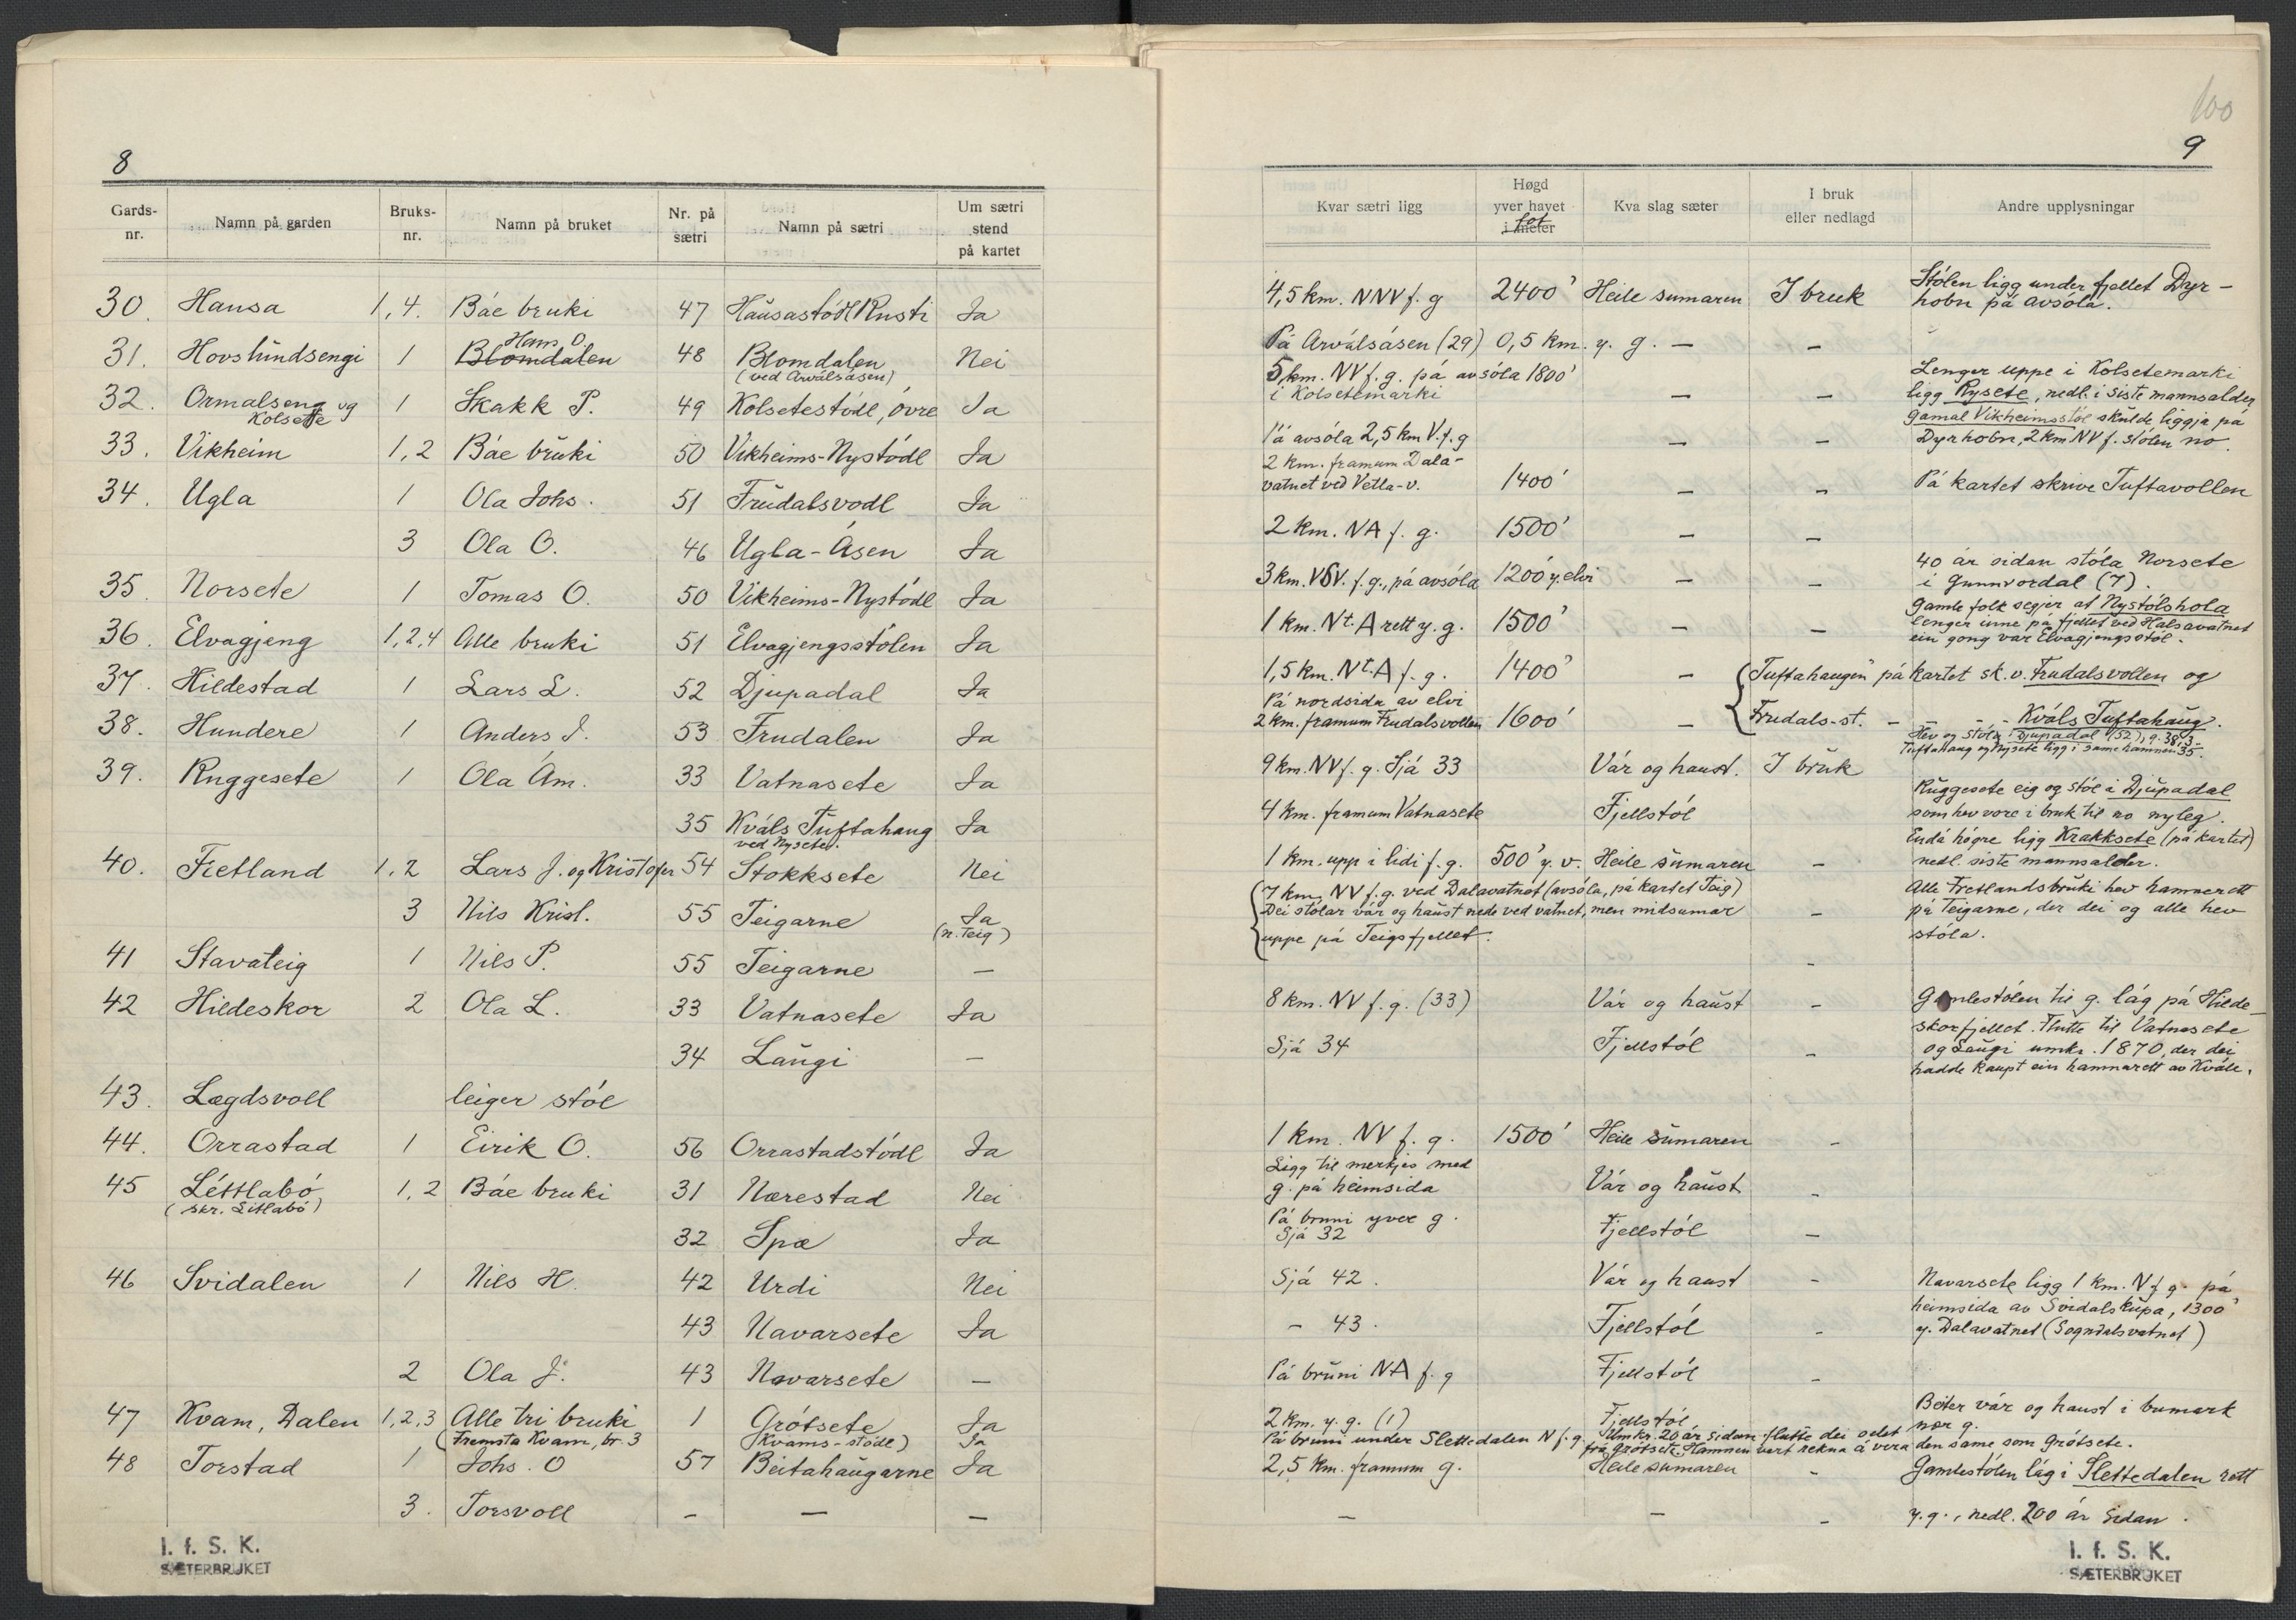 8
Gards-nr. Namn på garden Bruks-nr. Namn på bruket Nr. på sætri Namn på sætri Um sætri stend på kartet
30. Hausa 1,4. Báe bruki 47 Hausastódl Rusti Ja
31. Hovslundsengi 1 Blomdalen Hans O. 48 Blomdalen (ved Arvålsåsen) Nei
32. Ormalseng og Kolsette 1 Skakk P. 49 Kolsetestódl, óvre Ja
33. Vikheim 1,2 Báe bruki 50 Vikheims-Nystódl Ja
34. Ugla 1 Ola Johs. 51 Frudalsvodl Ja
3 Ola O. 46 Ugla-Åsen Ja
35. Norsete 1 Tomas O. 50 Vikheims-Nystódl Ja
36. Elvagjeng 1,2,4 Alle bruki 51 Elvagjengsstólen Ja
37. Hildestad 1 Lars L. 52 Djupadal Ja
38. Hundere 1 Anders J. 53 Frudalen Ja
39. Ruggesete 1 Ola Åm. 33 Vatnasete Ja
35 Kvåls Tuftahaug ved Nysete. Ja
40. Fretland 1,2 Lars J. og Kristofer 54 Stokksete Nei
3 Nils Krist. 55 Teigarne Ja (n. Teig)
41 Stavateig 1 Nils P. 55 Teigarne —
42 Hildeskor 2 Ola L. 33 Vatnasete Ja
34 Laugi —
43. Lægdsvoll leiger stól
44. Orrastad 1 Eirik O. 56 Orrastadstódl Ja
45 Léttlabó (skr. Litlabó) 1,2 Báe bruki 31 Nærestad Nei
32 Spæ Ja
46 Svidalen 1 Nils H. 42 Urdi Nei
43 Navarsete Ja
2 Ola J. 43 Navarsete —
47 Kvam, Dalen 1,2,3 Alle tri bruki 1 Grótsete Ja
(Fremsta Kvam, br. 3 (Kvams-stódl) Ja
48 Torstad 1 Johs. O 57 Beitahaugarne Ja
3. Torsvoll — — —
I. f. S. K.
SÆTERBRUKET
100
9
Kvar sætri ligg Høgd yver havet i meter fot Kva slag sæter I bruk eller nedlagd Andre upplysningar
4,5 km. NNV f. g 2400' Heile sumaren I bruk Stólen ligg under fjellet Dyr-
hobn på avsóla.
På Arvålsåsen (29) 0,5 km. y. g. — —
5 km. NV f. g. på avsóla 1800' i Kolsetemarki — — Lenger uppe i Kolsetemarki
ligg Rysete, nedl. i siste mannsalder
Gamal Vikheimsstól skulde liggja på
På avsóla 2,5 km V. f. g — — Dyrhobn, 2 km NV f. stólen no.
2 km. framum Dala-
vatnet ved Vetla-v. 1400' — — På kartet skrive Tuftavollen
2 km. NA f. g. 1500' — —
3 km. VSV. f. g., på avsóla 1200' y. elvi — — 40 år sidan stóla Norsete
i Gunnvordal (7).
1 km. Nt. A rett y. g. 1500' — — Gamle folk segjer at Nystólshola
lenger inne på fjellet ved Halsavatnet
ein gong var Elvagjengsstól.
1,5 km. Nt. A f. g. 1400' — Tuftahaugen på kartet sk. v. Frudalsvollen og
På nordsida av elvi
2 km. framum Frudalsvollen 1600' — Frudals-st. — — — Kvåls Tuftahaug.
Hev og stóla i Djupadal (52), g. 38, 3.
Tuftahaug og Nysete ligg i same hamnen 35.
9 km. NV f. g. Sjå 33 Vår og haust. I bruk
Ruggesete eig og stól i Djupadal
4 km. framum Vatnasete Fjellstól som hev vore i bruk til no nyleg.
Endå högre ligg Krakksete (på kartet)
1 km. upp i lidi f. g. 500' y. v. Heile sumaren — nedl. siste mannsalder.
7 km. NV f. g. ved Dalavatnet (avsóla, på kartet Teig) Alle Fretlandsbruki hev hamnerett
Dei stolar vår og haust nede ved vatnet, men midsumar — på Teigarne, der dei og alle hev
uppe på Teigsfjellet. stóla.
—
8 km. NV f. g. (33) Vår og haust — Gamlestólen til g. låg på Hilde-
skorfjellet. Flutte til Vatnasete
Sjå 34 Fjellstól — og Laugi umkr. 1870, der dei
hadde kaupt ein hamnarett av Kvåle.
1 km. NV f. g. 1500' Heile sumaren —
Ligg til merkjes med
g. på heimsida Vår og haust —
På bruni yver g.
Sjå 32 Fjellstól —
Sjå 42. Vår og haust — Navarsete ligg 1 km. N f g. på
heimsida av Svidalskupa, 1300'
— 43. Fjellstól — y. Dalavatnet (Sogndalsvatnet)
På bruni NA f. g Fjellstól —
Beiter vår og haust i bumark
2 km. y. g. (1) Fjellstól nær g.
På bruni under Slettedalen N f. g. Umkr. 20 år sidan flutte dei oelet
frå Grótsete. Hamnen vert rekna å vera den same som Grótsete.
2,5 km. framum g. Heile sumaren — Gamlestólen låg i Slettedalen rett
— — — y. g., nedl. 200 år sidan.
I. f. S. K.
SÆTERBRUKET